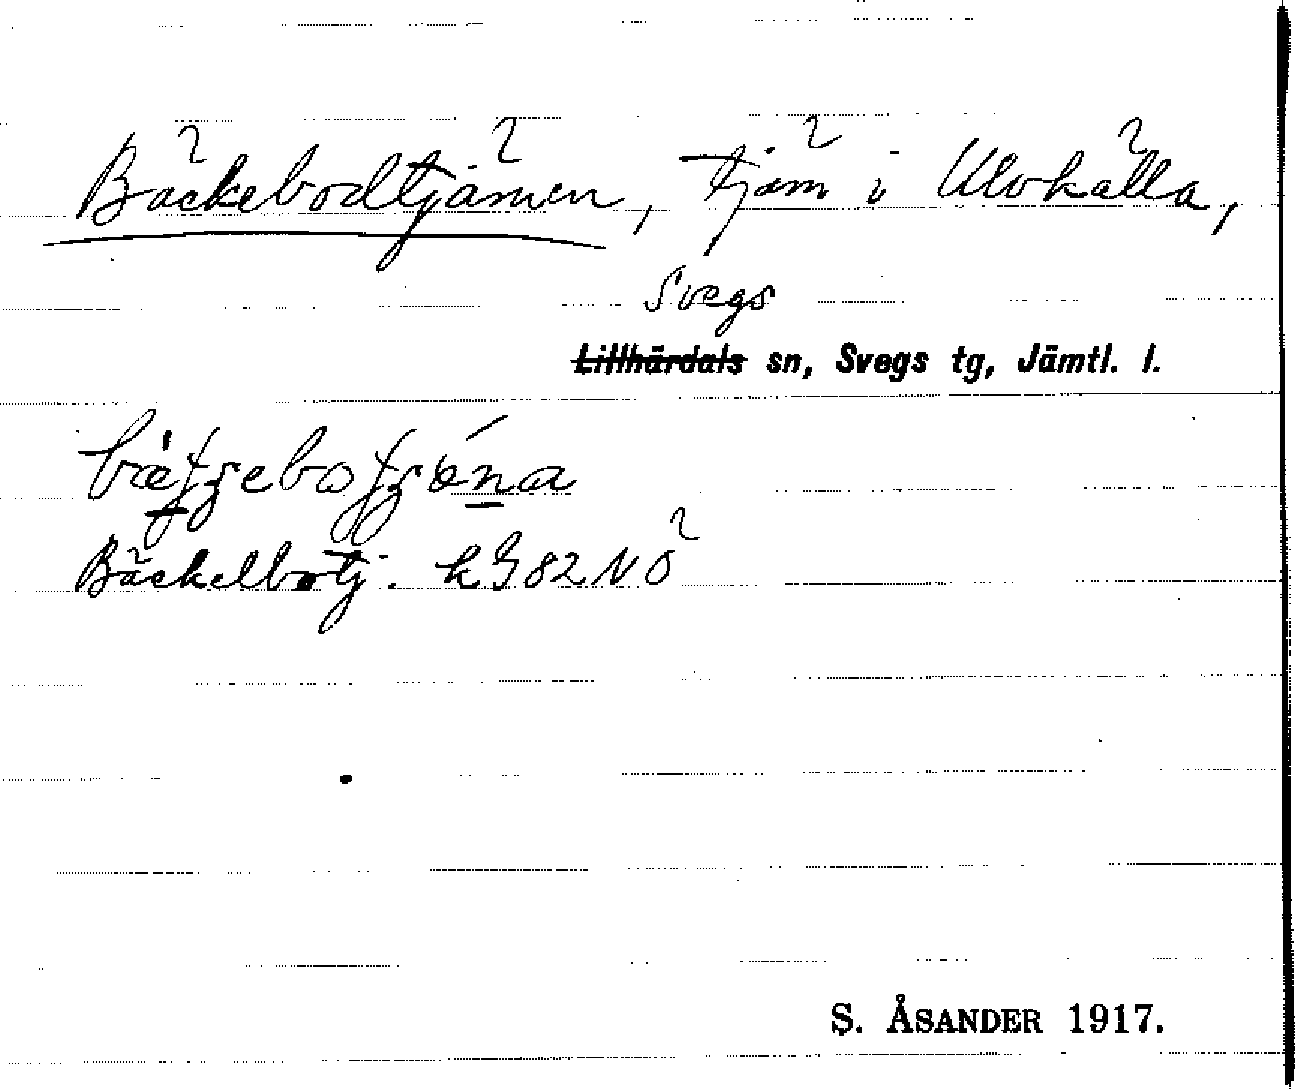 Bäckebodtjärnen, tjärn i Ulvkälla,
Svegs
Lillhärdals sn, Svegs tg, Jämtl. l.
Bäckelbotj. k J 82 NÖ
S. ÅSANDER 1917.